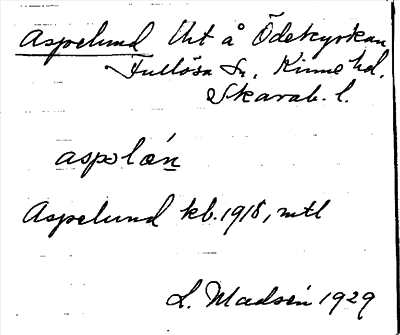 Aspelund Uht å Ödekyrkan
Fullösa Sn, Kinne hd.
Skarab. l.
aspəlǽn
Aspelund kb. 1918, mtl
L. Madsén 1929